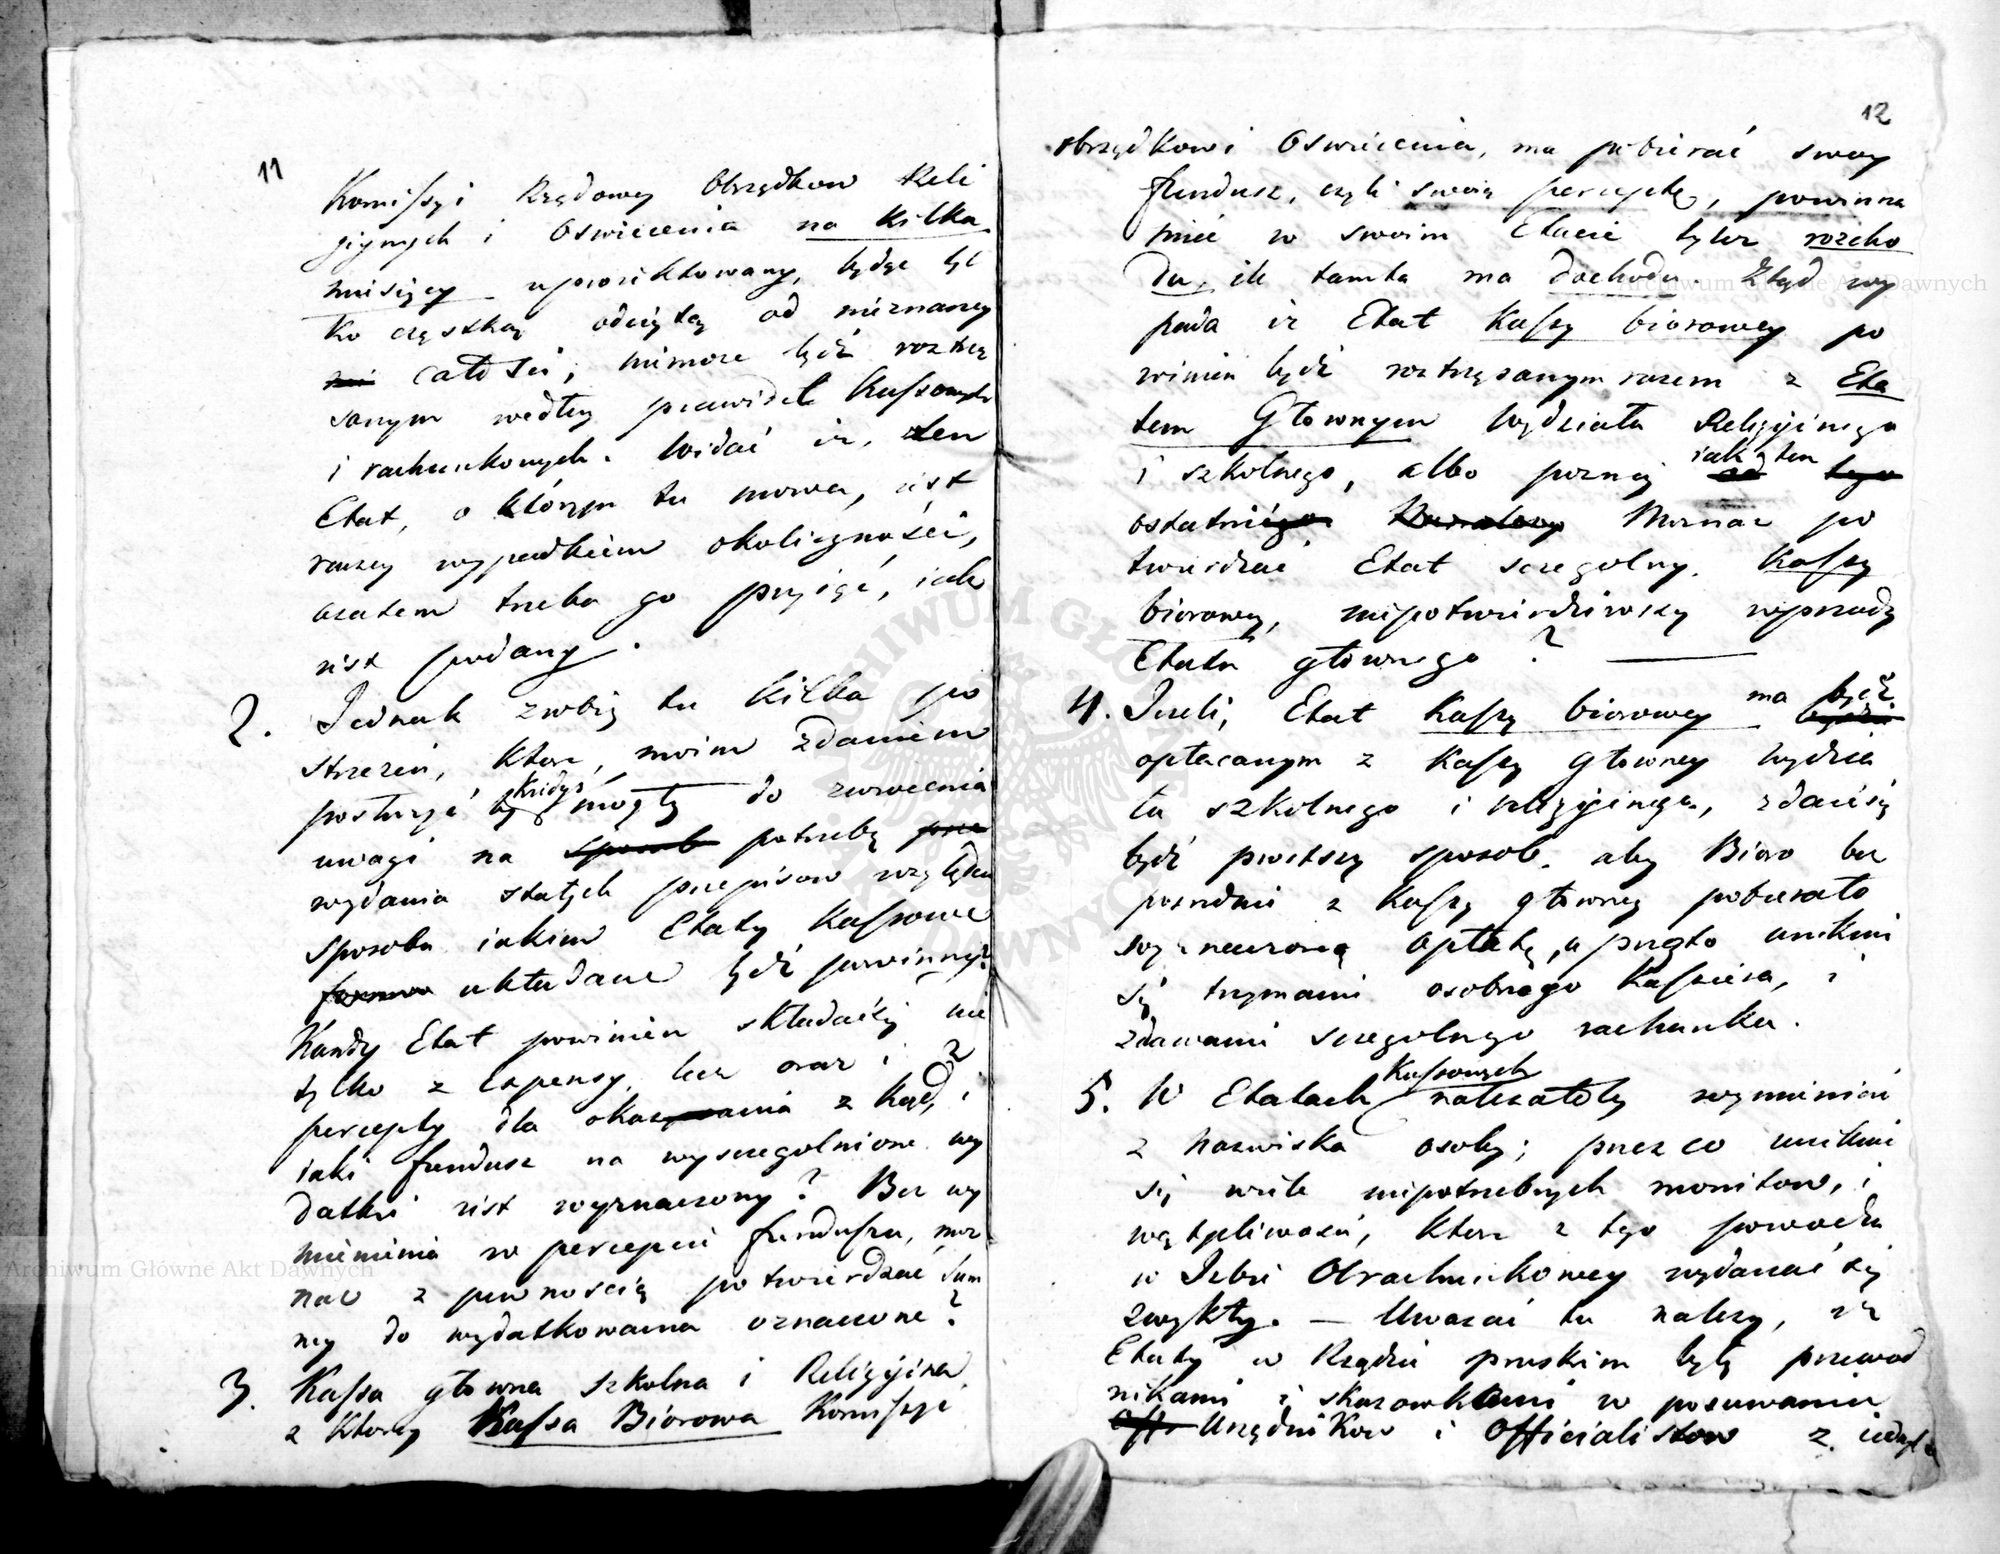 11
Komissyi Rządowey Obrządkow Reli
giynych i Oswiecenia na kilka
miesięcy uproiektowany, będąc tyl
ko cząstką odciętą od nieznaney
całości, niemoze bydź roztrzą
sanym według prawideł kassowych
i rachunkowych. Widać iż, ten
Etat, o którym tu mowa, iest
raczey wypadkiem okoliczności,
azatem trzeba go przyiąć, iak
iest podany.
2. Jednak zrobię tu kilka po
strzezeń, ktore, moim zdaniem
posłużyć by kiedyś mogły do zwrocenia
uwagi na sposob potrzebę
wydania stałych przepisow względem
sposobu iakim Etaty Kassowe
układane bydź powinny?
Kazdy Etat powinien składaćsię nie
tylko z expensy, lecz oraz i z
percepty dla okazania z kąd, i
iaki fundusz na wyszczegolnione wy
datki iest wyznaczony? Bez wy
mienienia w percepcie funduszu, moz
naz z pewnością potwierdzać Sum
my do wydatkowania oznaczone?
3. Kassa głowna szkolna i Religiyina
z ktorey Kassa Biorowa Komissyi
12
obrządkowi Oswiecenia, ma pobierać swoy
fundusz, czyli swoią perceptę, powinna
mieć w swoim Etacie tyler rozcho
du, ile tamta ma dochodu. Ztąd wy
pada iz Etat Kassy biorowey po
winien bydź roztrząsanym razem z Eta
tem Głownym Wydziału Religiyinego
i szkolnego, albo pozniey iak ten tego
ostatni Moznaz po
twierdzać Etat szczegolny Kassy
biorowey, niepotwierdziwszy wprzody
Etatu głownego?
4. Jezeli, Etat Kassy biorowey ma bydź
opłacanym z Kassy Głowney Wydzia
łu szkolnego i religiyinego, zdaiesię
bydź prostszy sposob, aby Bioro bez
posrednie z Kassy głowney pobierało
wyznaczoną opłatę, a przeto uniknie
się trzymanie osobnego Kassiera, i
zdawanie szczegolnego rachunku.
5. W Etatach Kassowych należałoby wymieniać
z nazwiska osoby; przez co uniknie
się wiele niepotrzebnych monitow, i
wątpliwości, ktore z tego powodu
w Izbie Obrachunkowey wydarzać się
zwykły. — Uwazać tu nalezy, iz
Etaty w Rządzie pruskim były przewod
nikami i skazowkami w posuwaniu
Urzędnikow i Officialistow z iedney